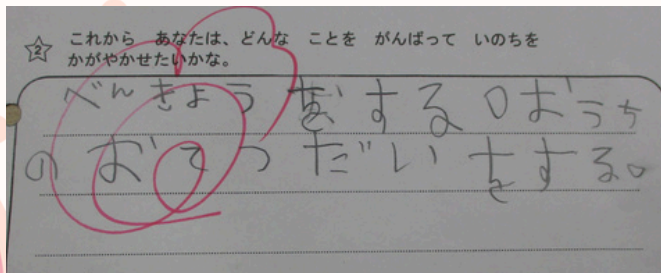 2 これから あなたは、どんな ことを がんばって いのちを
かがやかせたいかな。
べんきょうをする○おうち
のおてつだいをする。